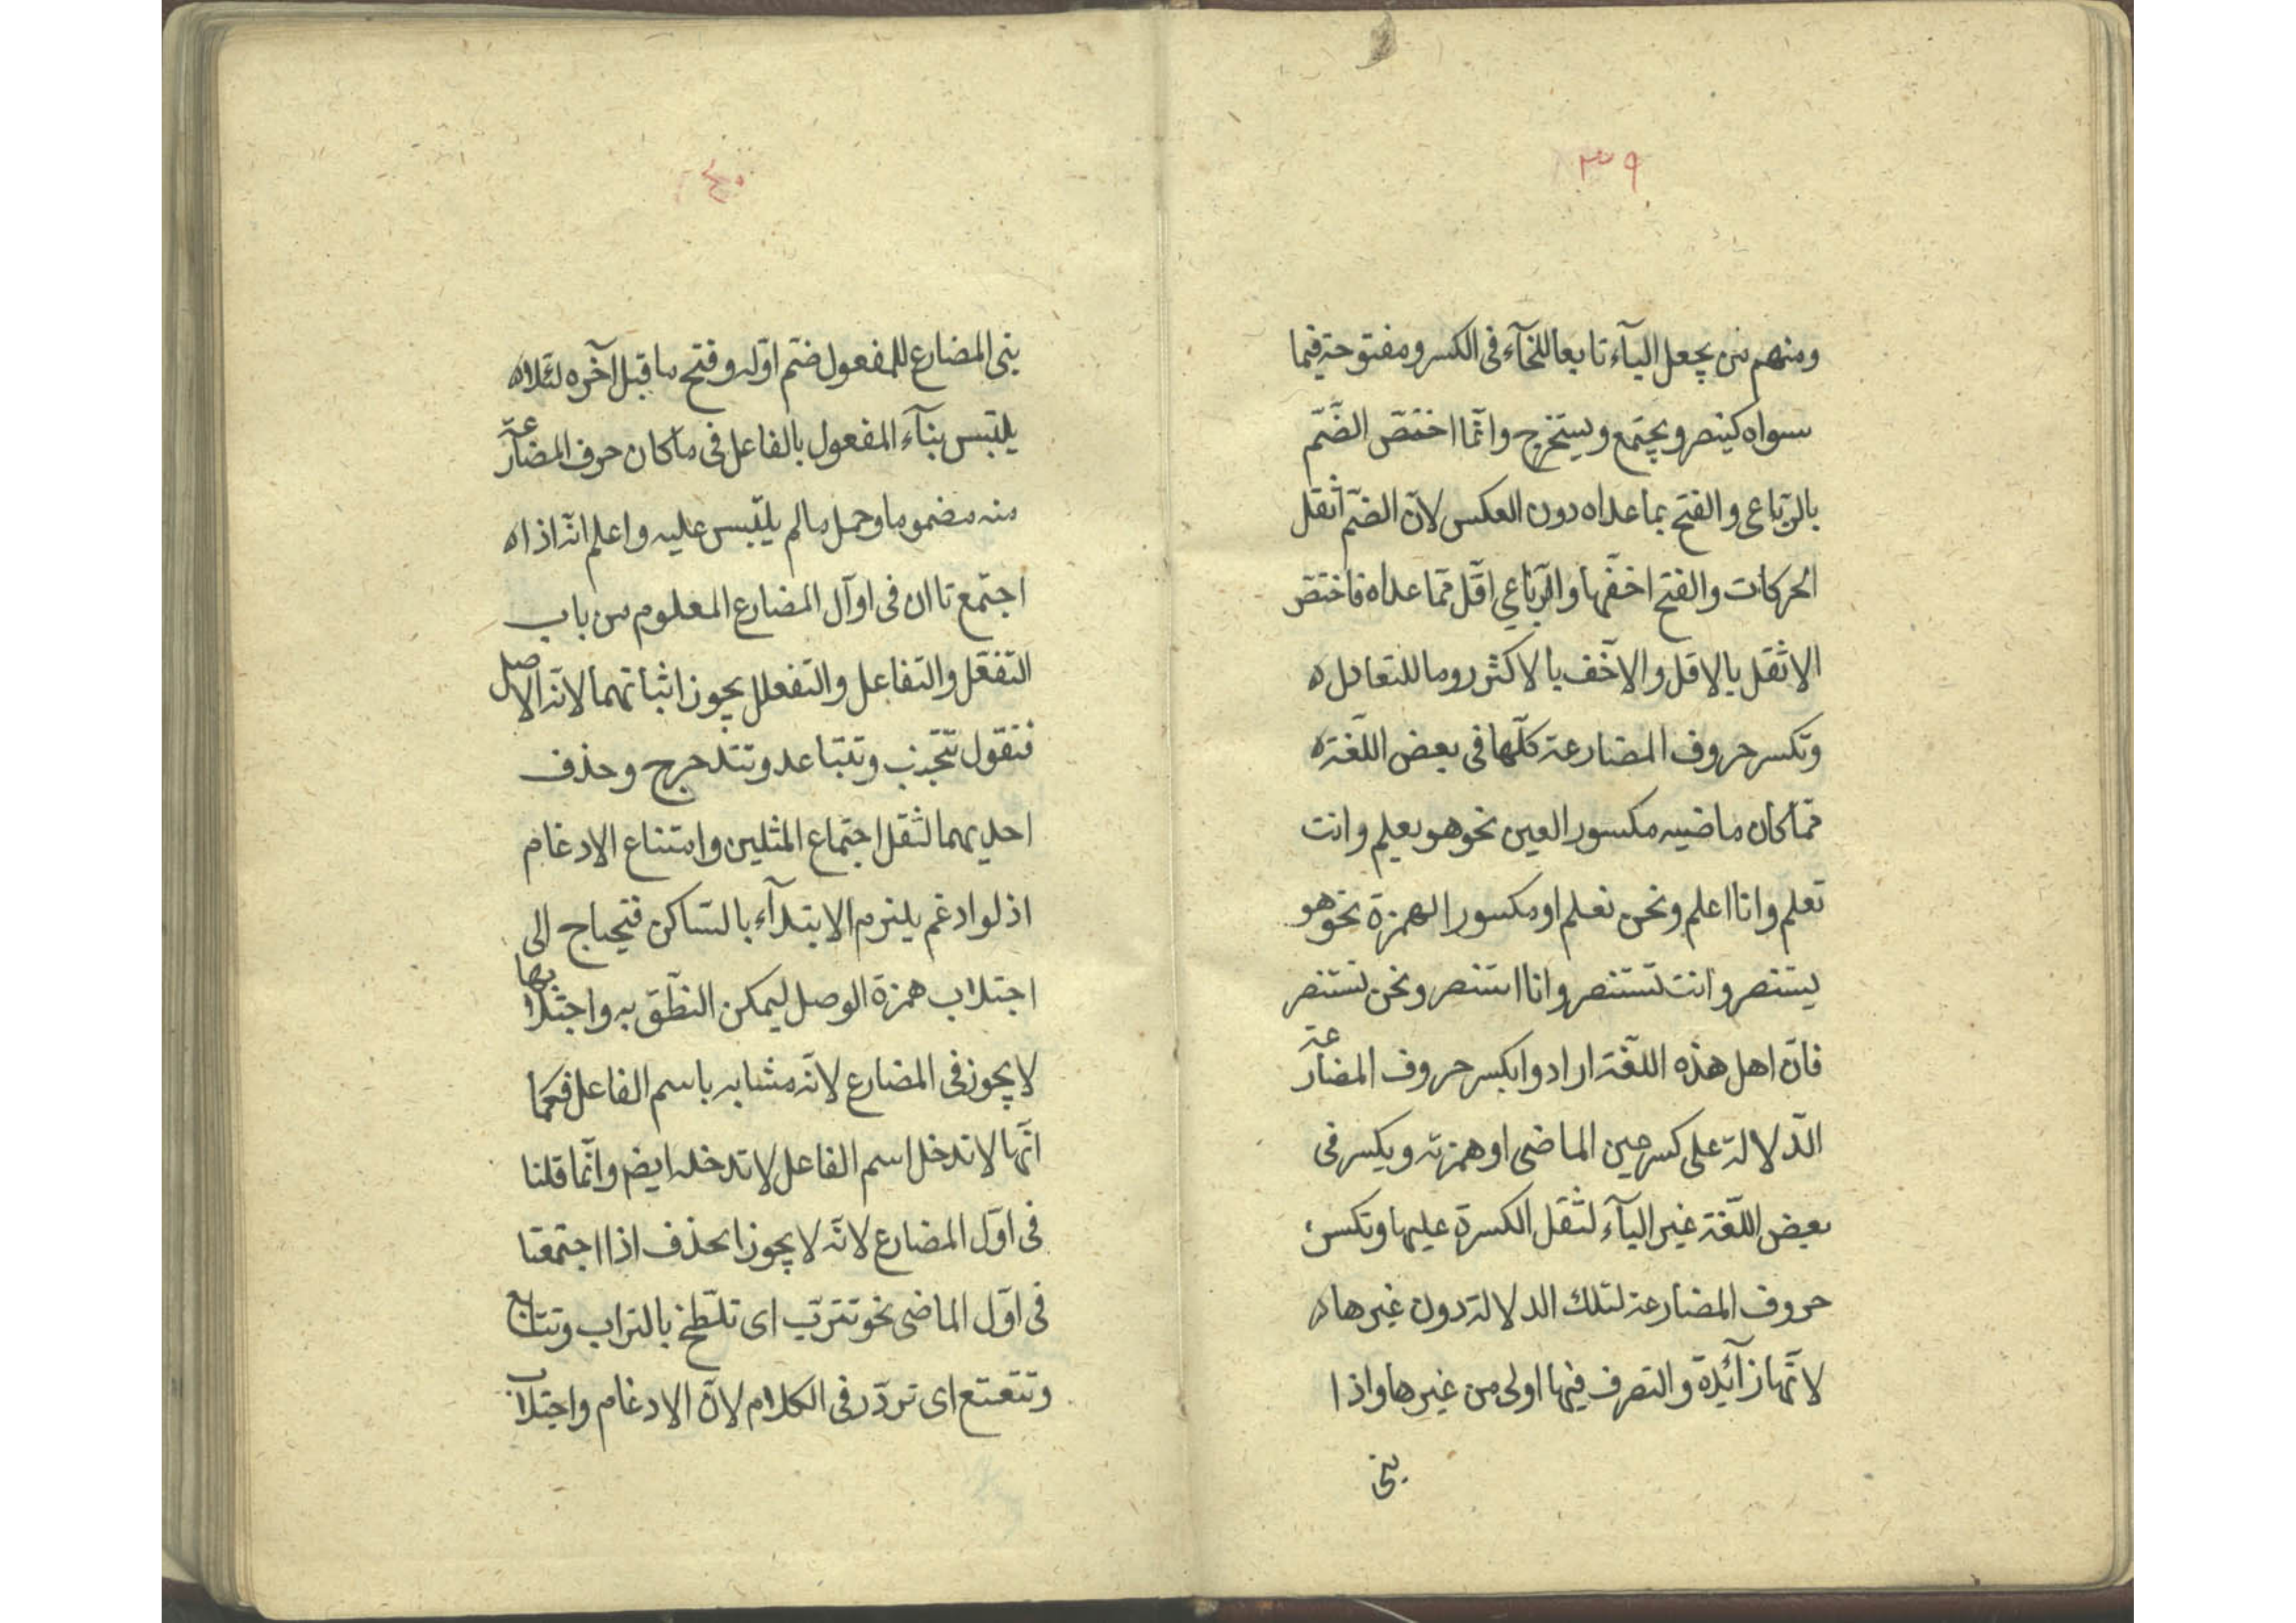 ٣٩
ومنهم من يجعل اليآء تابعا للخآء فى الكسر ومفتوحة فيما
سواه كينصر ويجتمع ويستخرج وانّما اختصّ الضّمّ
بالرّباعى والفتح بما عداه دون العكس لانّ الضمّ اثقل
الحركات والفتح اخفّها والرّباعي اقلّ ممّا عداه فاختصّ
الاثقل بالاقل والاخّف بالاكثر روما للتعادل ه
وتكسر حروف المضارعة كلّها فى بعض اللّغة ه
ممّا كان ماضيه مكسور العين نحو هو يعلم وانت
تعلم وانا اعلم ونحن نعلم او مكسور الهمزة نحو هو
يستنصر وانت تستنصر وانا استنصر ونحن نستنصر
فانّ اهل هذه اللّغة ارادوا بكسر حروف المضارعة
الدّلالة على كسر عين الماضى او همزته ويكسر فى
بعض اللّغة غير اليآء لثقل الكسرة عليها وتكسر
حروف المضارعة لتلك الدلالة دون غيرها ه
لانّها زآئدة والتصرف فيها اولى من غيرها واذا
بنى
٤٠
بنى المضارع للمفعول ضمّ اوّله وفتح ما قبل آخره لئلا ه
يلتبس بنآء المفعول بالفاعل فى ما كان حرف المضارعة
منه مضموما وحمل مالم يلتبس عليه واعلم انّه اذا ه
اجتمع تاان فى اوآل المضارع المعلوم من باب
التّفعّل والتّفاعل والتّفعلل يجوز اثباتهما لانّه الاصل
فتقول تتجنب وتتباعد وتتدحرج وحذف
احديهما لثقل اجتماع المثلين وامتناع الادغام
اذ لو ادغم يلزم الابتدآء بالسّاكن فيحتاج الى
اجتلاب همزة الوصل ليمكن النطّق به واجتلابها
لا يجوز فى المضارع لانّه مشابه باسم الفاعل فكما
انّها لا تدخل اسم الفاعل لا تدخله ايض وانّما قلنا
فى اوّل المضارع لانّه لا يجوز الحذف اذا اجتمعتا
فى اوّل الماضى نحو تترّب اى تلطّخ بالتراب وتتابع
وتتعتع اى تردّد فى الكلام لانّ الادغام واجتلاب